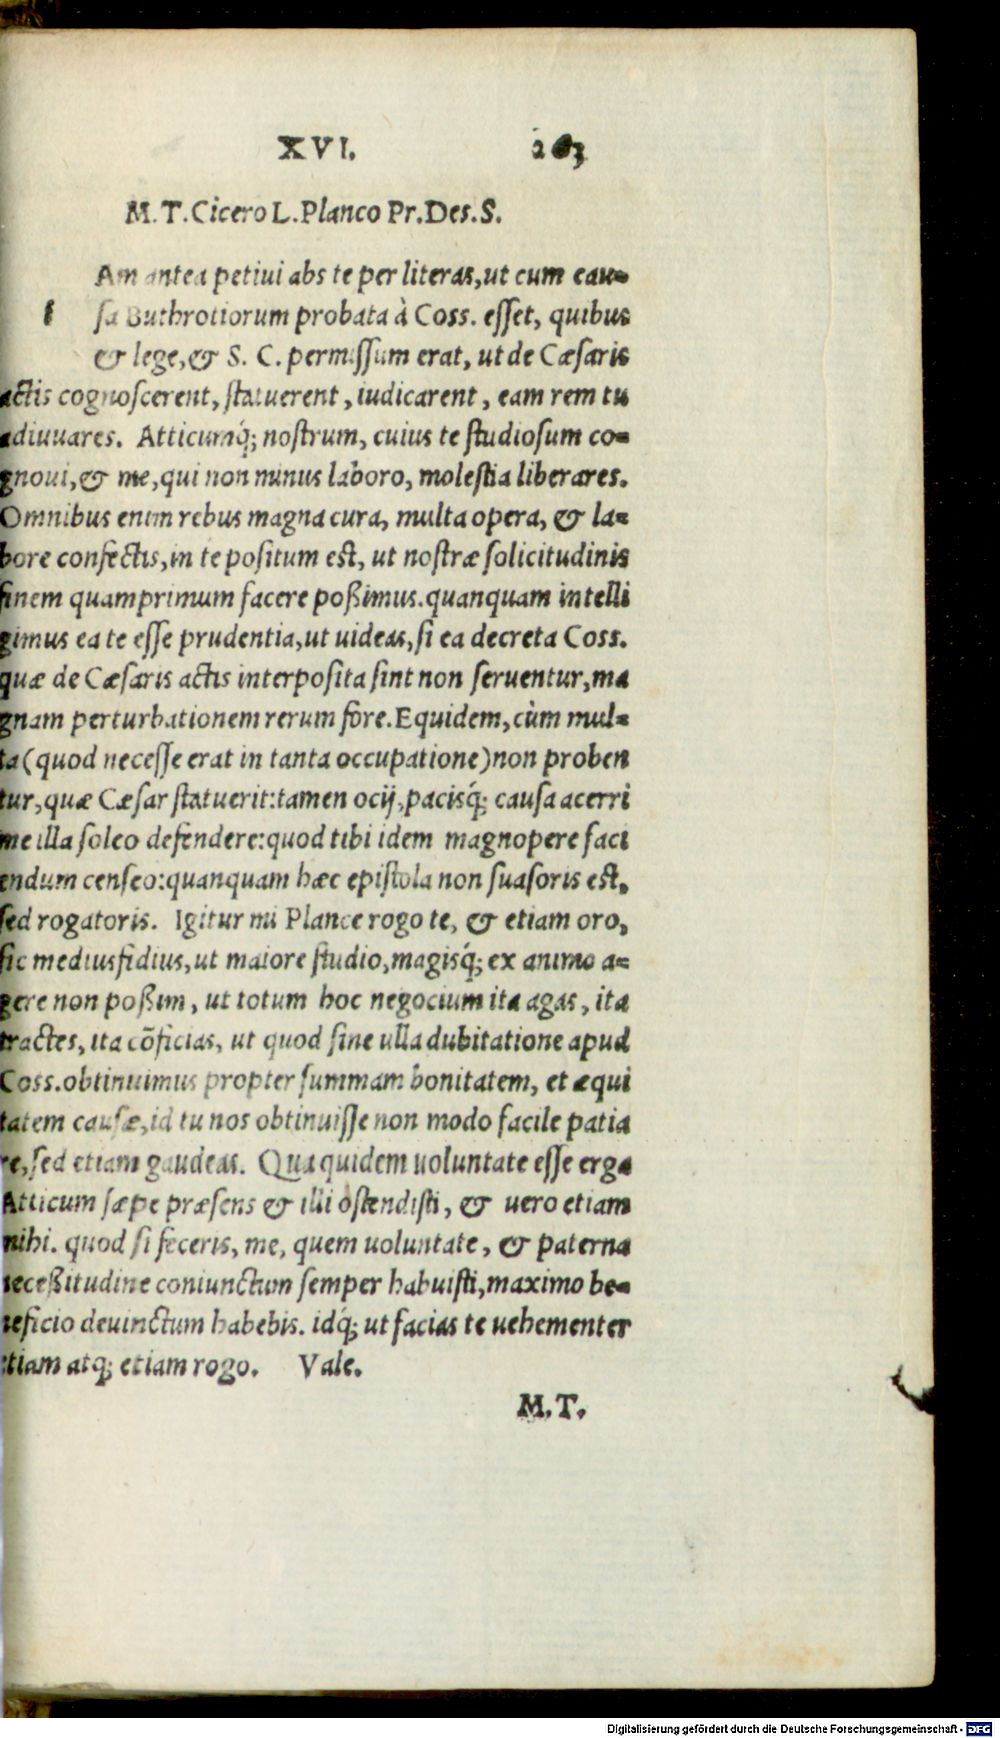 XVI. 263
M.T.Cicero L.Planco Pr.Des.S.
i Am antea petiui abs te per literas, ut cum cau=
sa Buthrotiorum probata à Coss. esset, quibus
& lege, & S. C. permissum erat, ut de Cæsaris
actis cognoscerent, statuerent, iudicarent, eam rem tu
adiuuares. Atticumq́; nostrum, cuius te studiosum co=
gnoui, & me, qui non minus laboro, molestia liberares.
Omnibus enim rebus magna cura, multa opera, & la=
bore confectis, in te positum est, ut nostræ solicitudinis
finem quamprimum facere poßimus. quanquam intelli
gimus ea te esse prudentia, ut uideas, si ea decreta Coss.
quæ de Cæsaris actis interposita sint non seruentur, ma
gnam perturbationem rerum fore. Equidem, cùm mul=
ta (quod necesse erat in tanta occupatione) non proben
tur, quæ Cæsar statuerit: tamen ocij, pacisq́; causa acerri
me illa soleo defendere: quod tibi idem magnopere faci
endum censeo: quanquam hæc epistola non suasoris est,
sed rogatoris. Igitur mi Plance rogo te, & etiam oro,
sic mediusfidius, ut maiore studio, magisq́; ex animo a=
gere non poßim, ut totum hoc negocium ita agas, ita
tractes, ita cõficias, ut quod sine ulla dubitatione apud
Coss. obtinuimus propter summam bonitatem, et æqui
tatem causæ, id tu nos obtinuisse non modo facile patia
re, sed etiam gaudeas. Qua quidem uoluntate esse erga
Atticum sæpe præsens & illi ostendisti, & uero etiam
mihi. quod si feceris, me, quem uoluntate, & paterna
neceßitudine coniunctum semper habuisti, maximo be=
neficio deuinctum habebis. idq́; ut facias te uehementer
etiam atq; etiam rogo. Vale.
M.T.
Digitalisierung gefördert durch die Deutsche Forschungsgemeinschaft - DFG